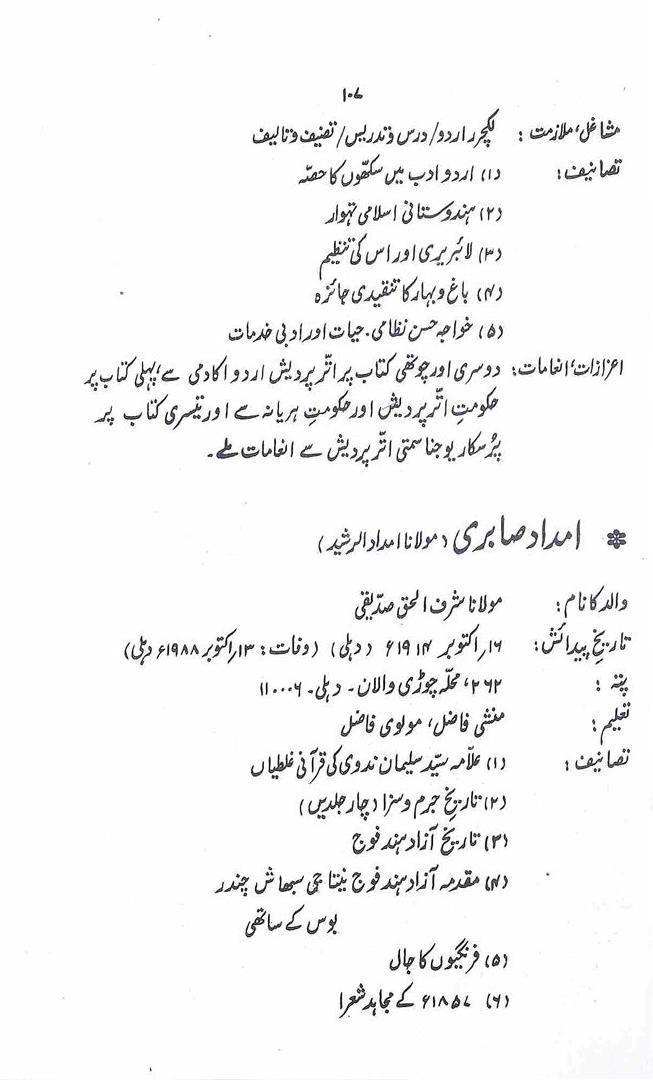 ۱۰۷
مشاغل، ملازمت : لکچرر اردو / درس و تدریس / تصنیف و تالیف
تصانیف : (۱) اردو ادب میں سکھوں کا حصّہ
(۲) ہندوستانی اسلامی تہوار
(۳) لائبریری اور اس کی تنظیم
(۴) باغ و بہار کا تنقیدی جائزہ
(۵) خواجہ حسن نظامی۔ حیات اور ادبی خدمات
اعزازات، انعامات : دوسری اور چوتھی کتاب پر اتّر پردیش اردو اکادمی سے، پہلی کتاب پر
حکومتِ اتّر پردیش اور حکومتِ ہریانہ سے اور تیسری کتاب پر
پُرسکار یوجنا سمتی اتّر پردیش سے انعامات ملے۔
امداد صابری (مولانا امداد الرشید)
والد کا نام : مولانا شرف الحق صدّیقی
تاریخِ پیدائش : ۱۶؍ اکتوبر ۱۹۱۴ء (دہلی) (وفات : ۱۳؍ اکتوبر ۱۹۸۸ء دہلی)
پتہ : ۲۶۲، محلّہ چوڑی والان۔ دہلی۔ ۱۱۰۰۰۶
تعلیم : منشی فاضل، مولوی فاضل
تصانیف : (۱) علاّمہ سیّد سلیمان ندوی کی قرآنی غلطیاں
(۲) تاریخِ جرم و سزا (چار جلدیں)
(۳) تاریخ آزاد ہند فوج
(۴) مقدمہ آزاد ہند فوج نیتا جی سبھاش چندر
بوس کے ساتھی
(۵) فرنگیوں کا جال
(۶) ۱۸۵۷ء کے مجاہد شعرا